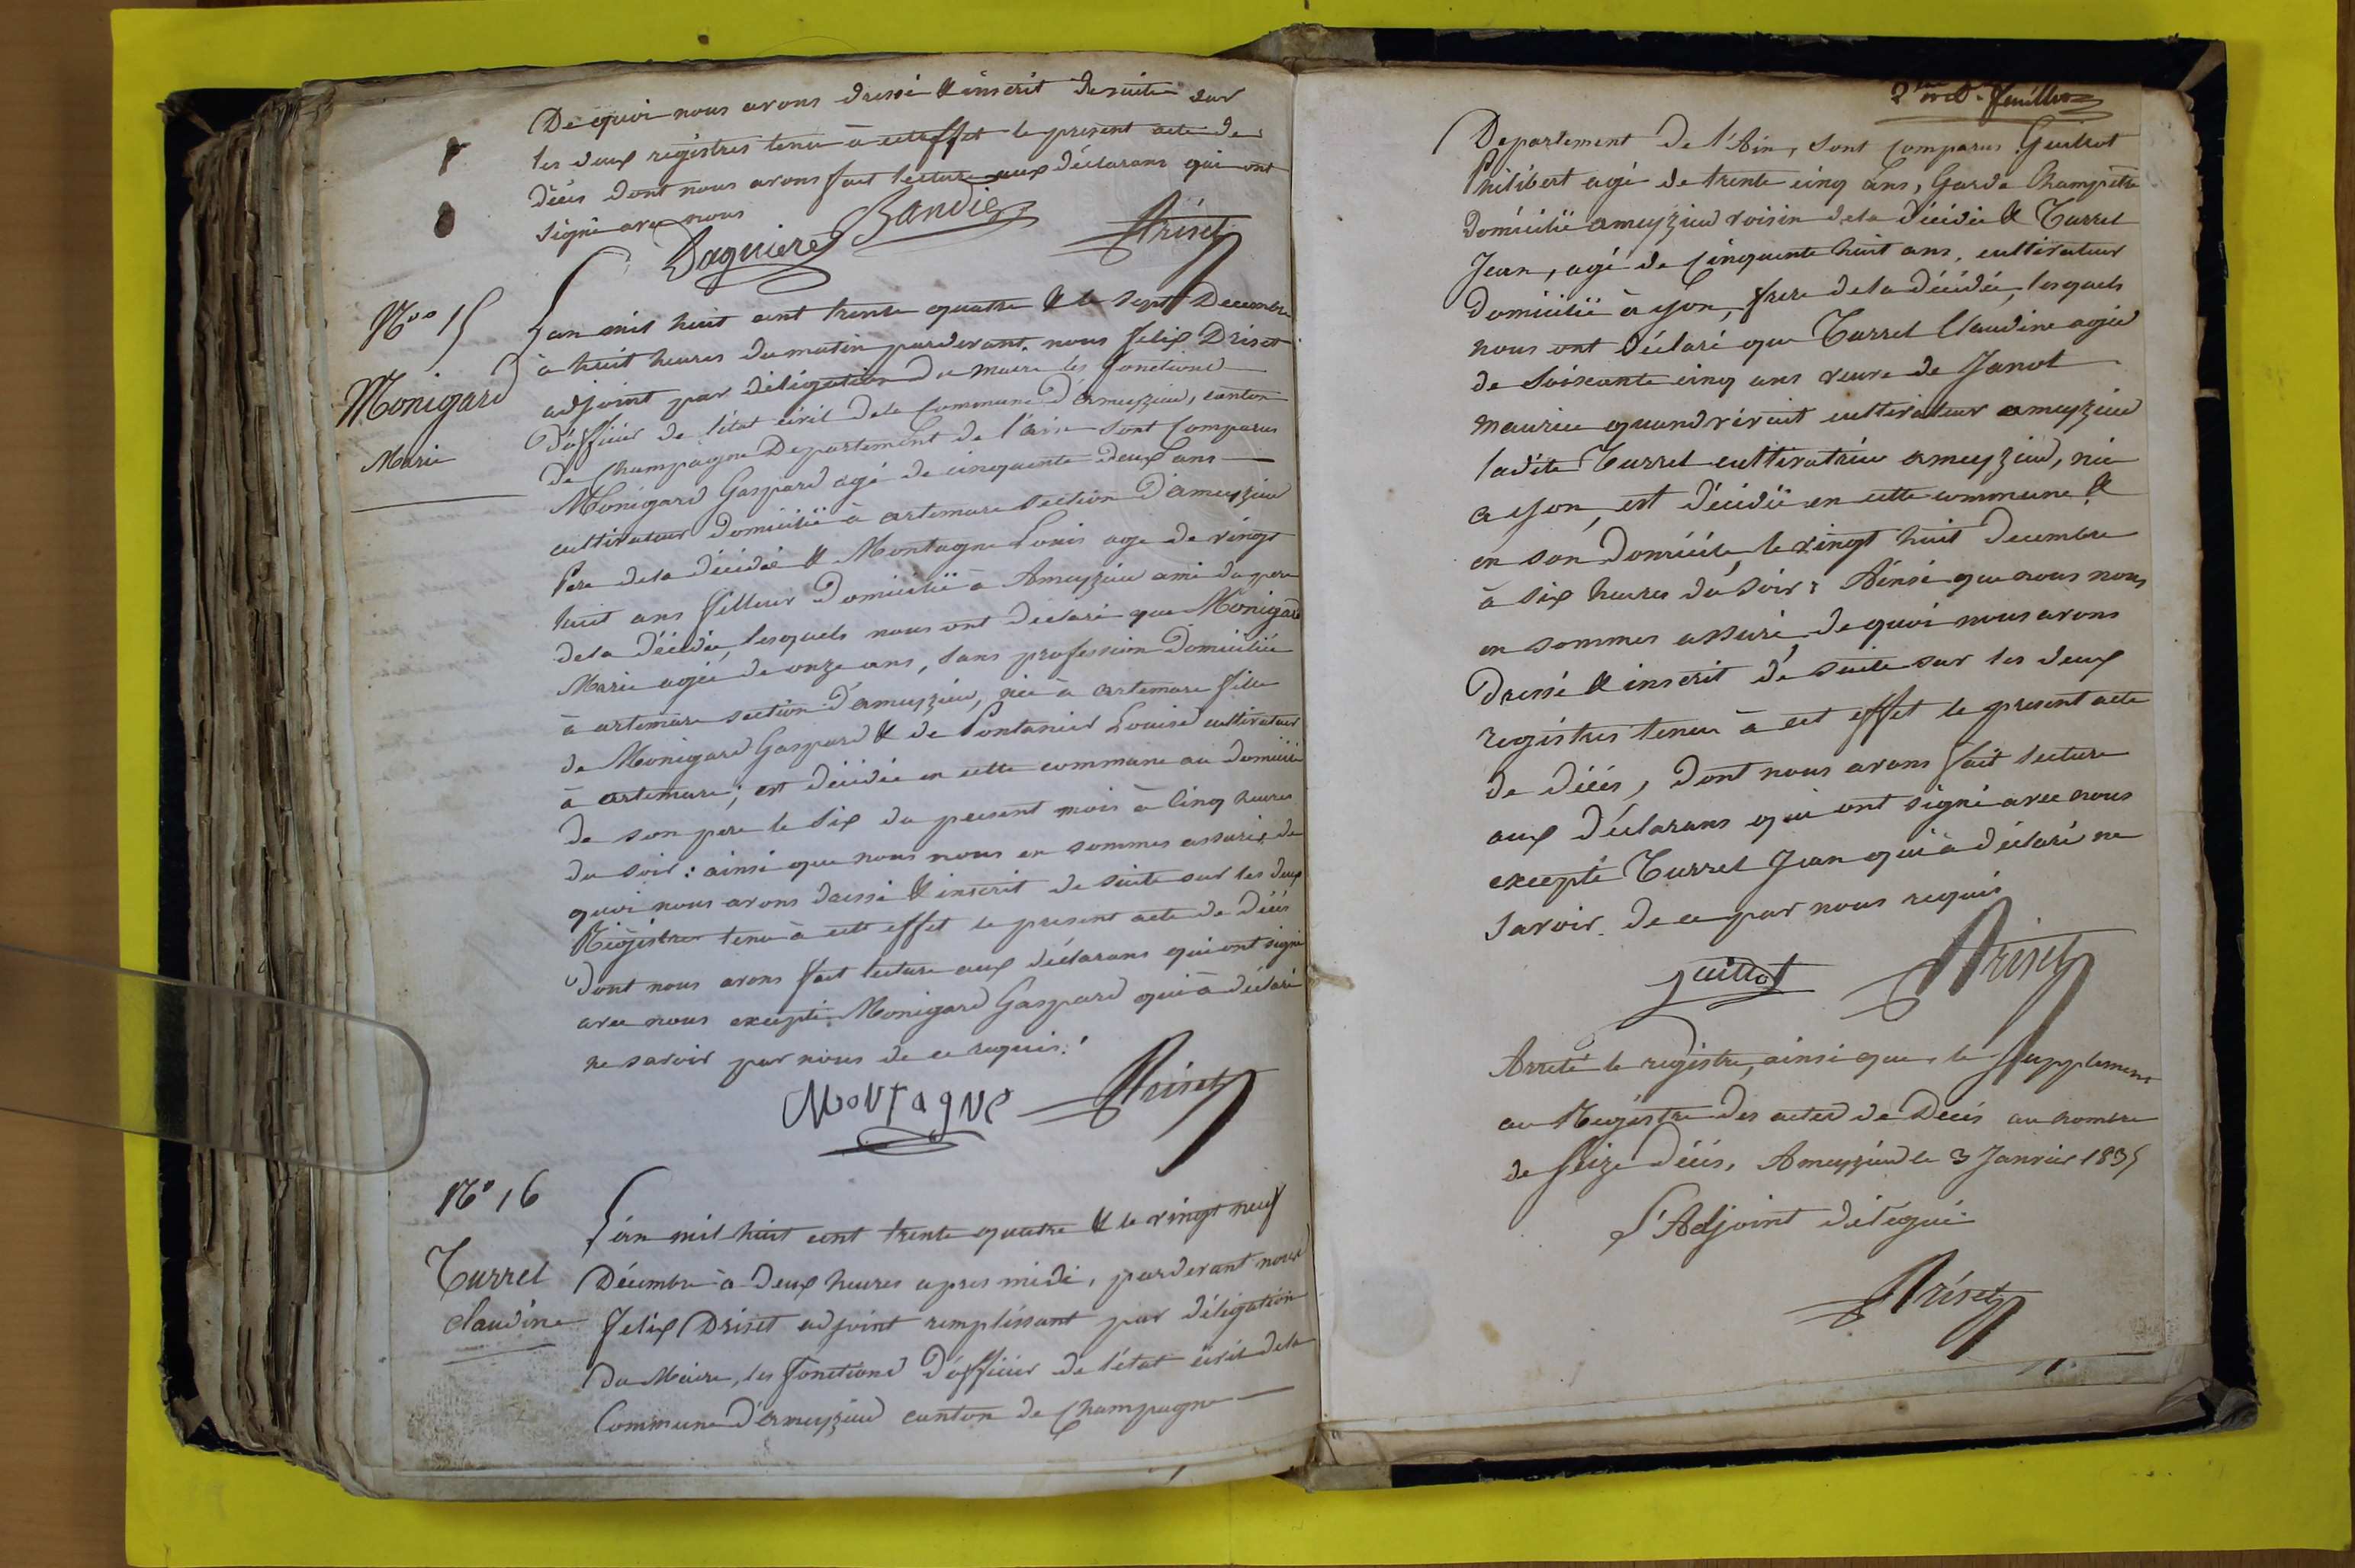 De quoi nous avons dressé & inscrit de suite sur
les deux registres tenu à cet effet le present acte de
décés dont nous avons fait lecture aux déclarans qui ont
signé avec nous
Daguiere Bandie Driset
Nos 15
Monigard
Marie
L'an mil huit cent trente quatre & le sept Decembre
à huit heures du matin pardevant nous felix Driset
adjoint par déligation du maire les fonctions
d'officier de l'état civil dela Commune d'ameyzieu, canton
de Champagne Departement de l'ain sont comparus
Monigard Gaspard agé de cinquante deux ans
cultivateur domicilié à artemare section d'ameyzieu
Pere dela décédée & Montagne Louis age de vingt
huit ans filleur domicilié à Ameyzieu ami du pere
dela décédée, lesquels nous ont declaré que Monigard
Marie agée de onze ans, sans profession domiciliée
à artemare section d'ameyzieu, née à artemare fille
de Monigard Gaspard & de Pontanier Louise cultivateur
à artemare; est décédée en cette commune au domicile
de son pere le six du present mois à cinq heures
du soir: ainsi que nous nous en sommes assuré, de
quoi nous avons dressé & inscrit de suite sur les deux
Régistres tenu à cett effet le present acte de décés
dont nous avons fait lecture aux déclarans qui ont signé
avec nous excepté Monigard Gaspard qui à déclaré
ne savoir par nous de ce requis.
MoNTagNe Driset
No 16
Turrel
claudine
L'an mil huit cent trente quatre & le vingt neuf
Décembre à deux heures apres midi, pardevant nous
felix Driset adjoint remplissant par déligation
du Maire, les fonctions d'officier de l'état civil dela
Commune d'ameyzieu canton de Champagne
2me feuillet
Departement de l'Ain, sont comparus Guillot
Philibert agé de trente cinq ans, Garde Champetre
domicilié ameyzieu voisin dela décédée & Turrel
Jean, agé de cinquante huit ans, cultivateur
domicilié à yon, frere dela décédée, lesquels
nous ont déclaré que Turrel Claudine agée
de soixante cinq ans veuve de Janot
maurice quand vivait cultivateur ameyzieu
ladite Turrel cultivatrice ameyzieu, née
a yon, est décédée en cette commune &
en son domicile, le vingt huit Decembre
à six heures du soir: Ainsi que nous nous
en sommes assuré, de quoi nous avons
dressé & inscrit de suite sur les deux
registres tenu à cet effet le present acte
de décés, dont nous avons fait lecture
aux déclarans qui ont signé avec nous
excepté Turrel Jean qui à déclaré ne
savoir de ce par nous requis
guillot Driset
Arreté le registre, ainsi que le supplement
au Registre des actes de Decés au nombre
de seize décés, Ameyzieu le 3 Janvier 1835
L'Adjoint délégué
Driset